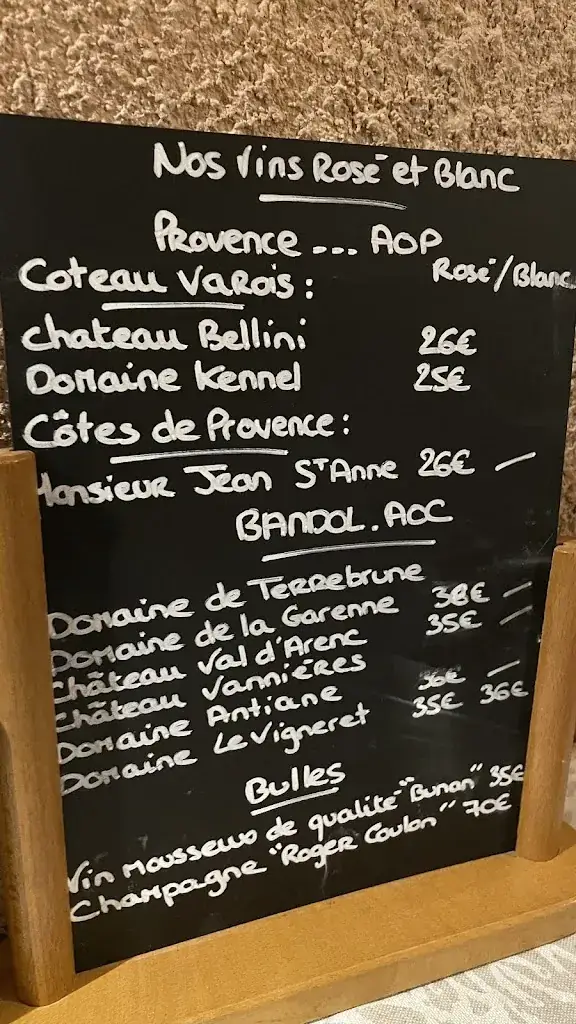 Nos Vins Rosé et Blanc
Provence ... AOP
Rosé/Blanc
Coteau Varois :
Chateau Bellini 26€
Domaine Kennel 25€
Côtes de Provence :
Monsieur Jean St Anne 26€ —
BANDOL. AOC
Domaine de Terrebrune 38€ —
Domaine de la Garenne 35€ —
Château Val d'Arenc
Château Vannières 36€ —
Domaine Antiane 35€ 36€
Domaine Le Vigneret
Bulles
Vin mousseux de qualité "Bunan" 35€
Champagne "Roger Coulon" 70€